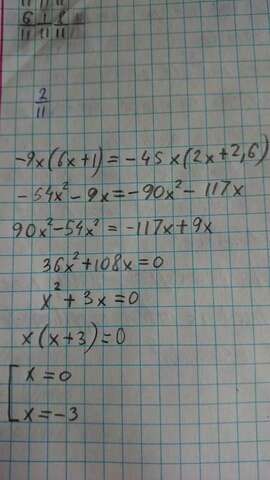 11 11 11
6 1 8
11 11 11
2
11
-9x(6x+1)=-45x(2x+2,6)
-54x²-9x=-90x²-117x
90x²-54x²=-117x+9x
36x²+108x=0
x²+3x=0
x(x+3)=0
x=0
x=-3